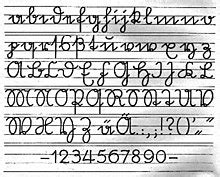 a b c d e f g h i j k l m n o
p q r ſ s ß t u v w x y z
A B C D E F G H I J K L
M N O P Q R S T U V
W X Y Z ä Ä . , : ; ! ? ( ) ' "
-1234567890-